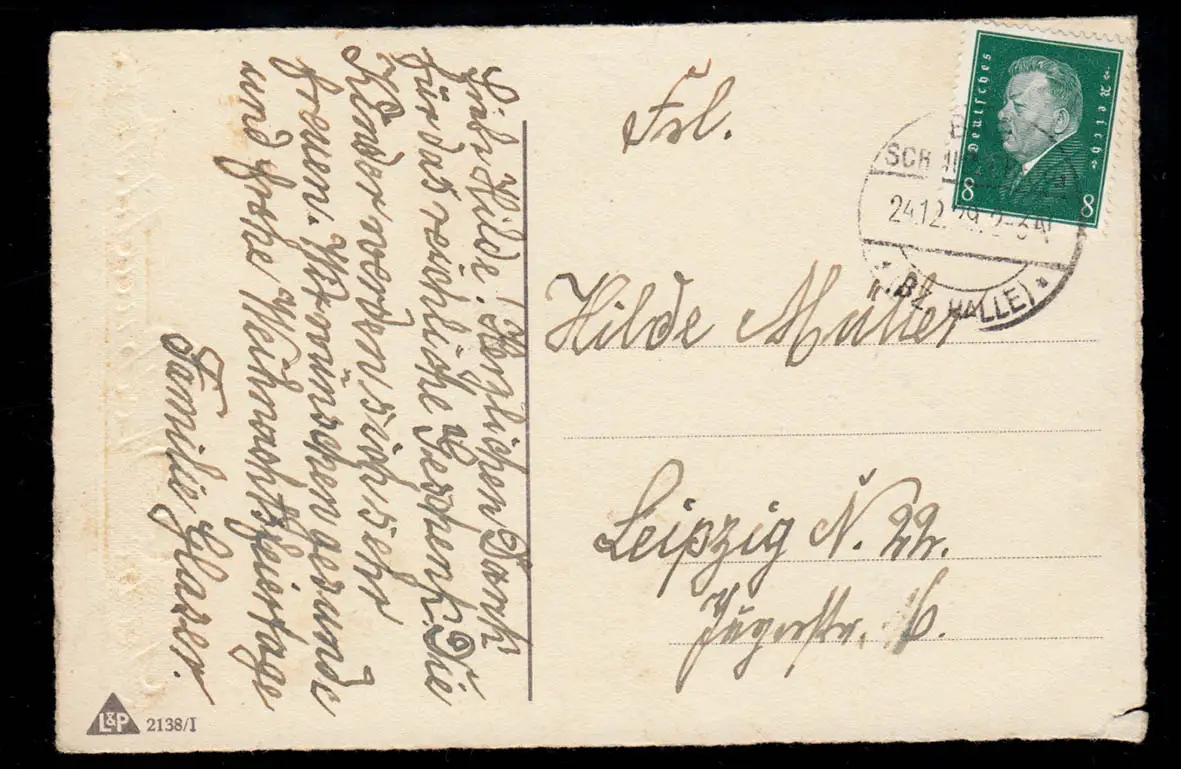 Liebe Hilde! Herzlichen Dank
für das reichliche Geschenk. Die
Kinder werden sich sehr
freuen. Wir wünschen gesunde
und frohe Weihnachtsfeiertage
Familie Glaser.
Frl.
Hilde Müller
Leipzig N. 22.
Jägerstr. 6.
Deutsches Reich
8 8
SCH
24.12.29. 2-3 N
* (Bz. HALLE) *
L&P 2138/I